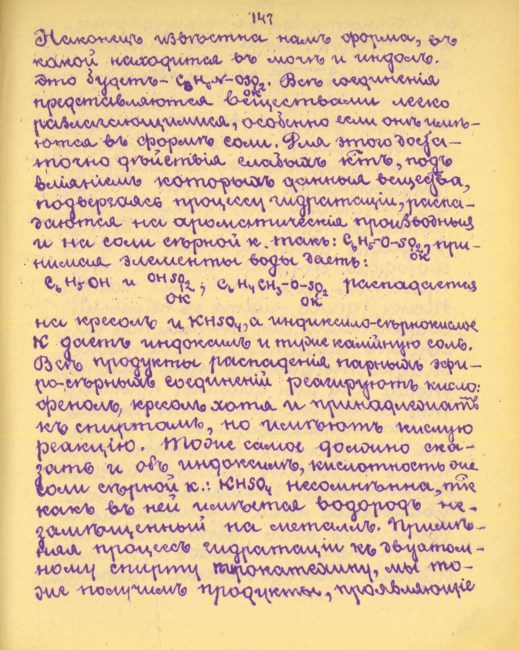 147
Наконецъ извѣстна намъ форма, въ
какой находится въ мочѣ и индолъ.
Это будетъ - C₈H₆N-OSO₂. Всѣ соединенія
OK
представляются веществами легко
разлагающимися, особенно если онѣ имѣ-
ются въ формѣ соли. Для этого доста-
точно дѣйствія слабыхъ к-тъ, подъ
вліяніемъ которыхъ данныя вещества,
подвергаясь процессу гидратаціи, распа-
даются на ароматическія производныя
и на соли сѣрной к. такъ: C₆H₅-O-SO₂, при-
OK
нимая элементы воды даетъ:
C₆H₅OH и OHSO₂; C₆H₄CH₃-O-SO₂ распадается
OK OK
на кресолъ и KHSO₄, а индоксило-сѣрнокислое
К даетъ индоксилъ и туже калійную соль.
Всѣ продукты распаденія парныхъ эфи-
ро-сѣрныхъ соединеній реагируютъ кисло:
фенолъ, кресолъ хотя и принадлежатъ
къ спиртамъ, но имѣютъ кислую
реакцію. Тоже самое должно ска-
зать и объ индоксилѣ, кислотность же
соли сѣрной к.: KHSO₄ несомнѣнна, тѣ
какъ въ ней имѣется водородъ не-
замѣщенный на металлъ. Примѣ-
няя процессъ гидратаціи къ двуатом-
ному спирту пирокатехину, мы то-
же получимъ продукты, проявляющіе